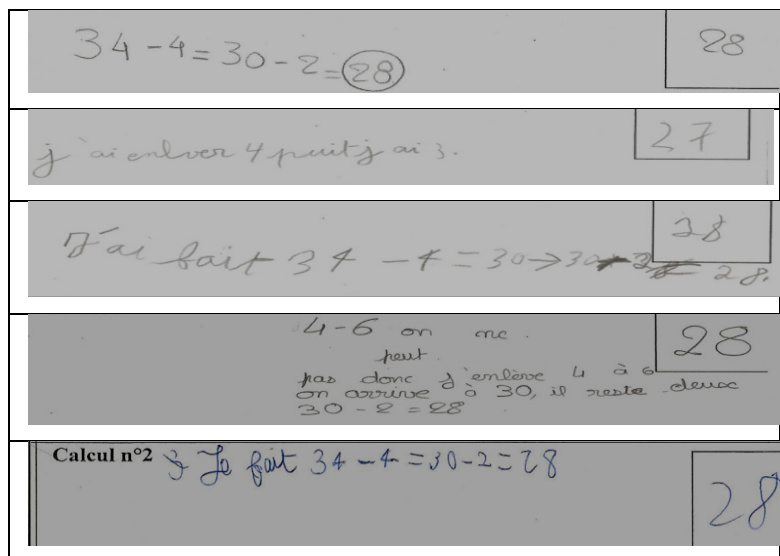 34 - 4 = 30 - 2 = 28
28
j'ai enlver 4 puit j ai 3.
27
28
J'ai fait 34 - 4 = 30 → 30 28.
4-6 on ne
peut
28
pas donc j'enlève 4 à 6
on arrive à 30, il reste deux
30 - 2 = 28
Calcul n°2 Je fait 34 - 4 = 30 - 2 = 28
28